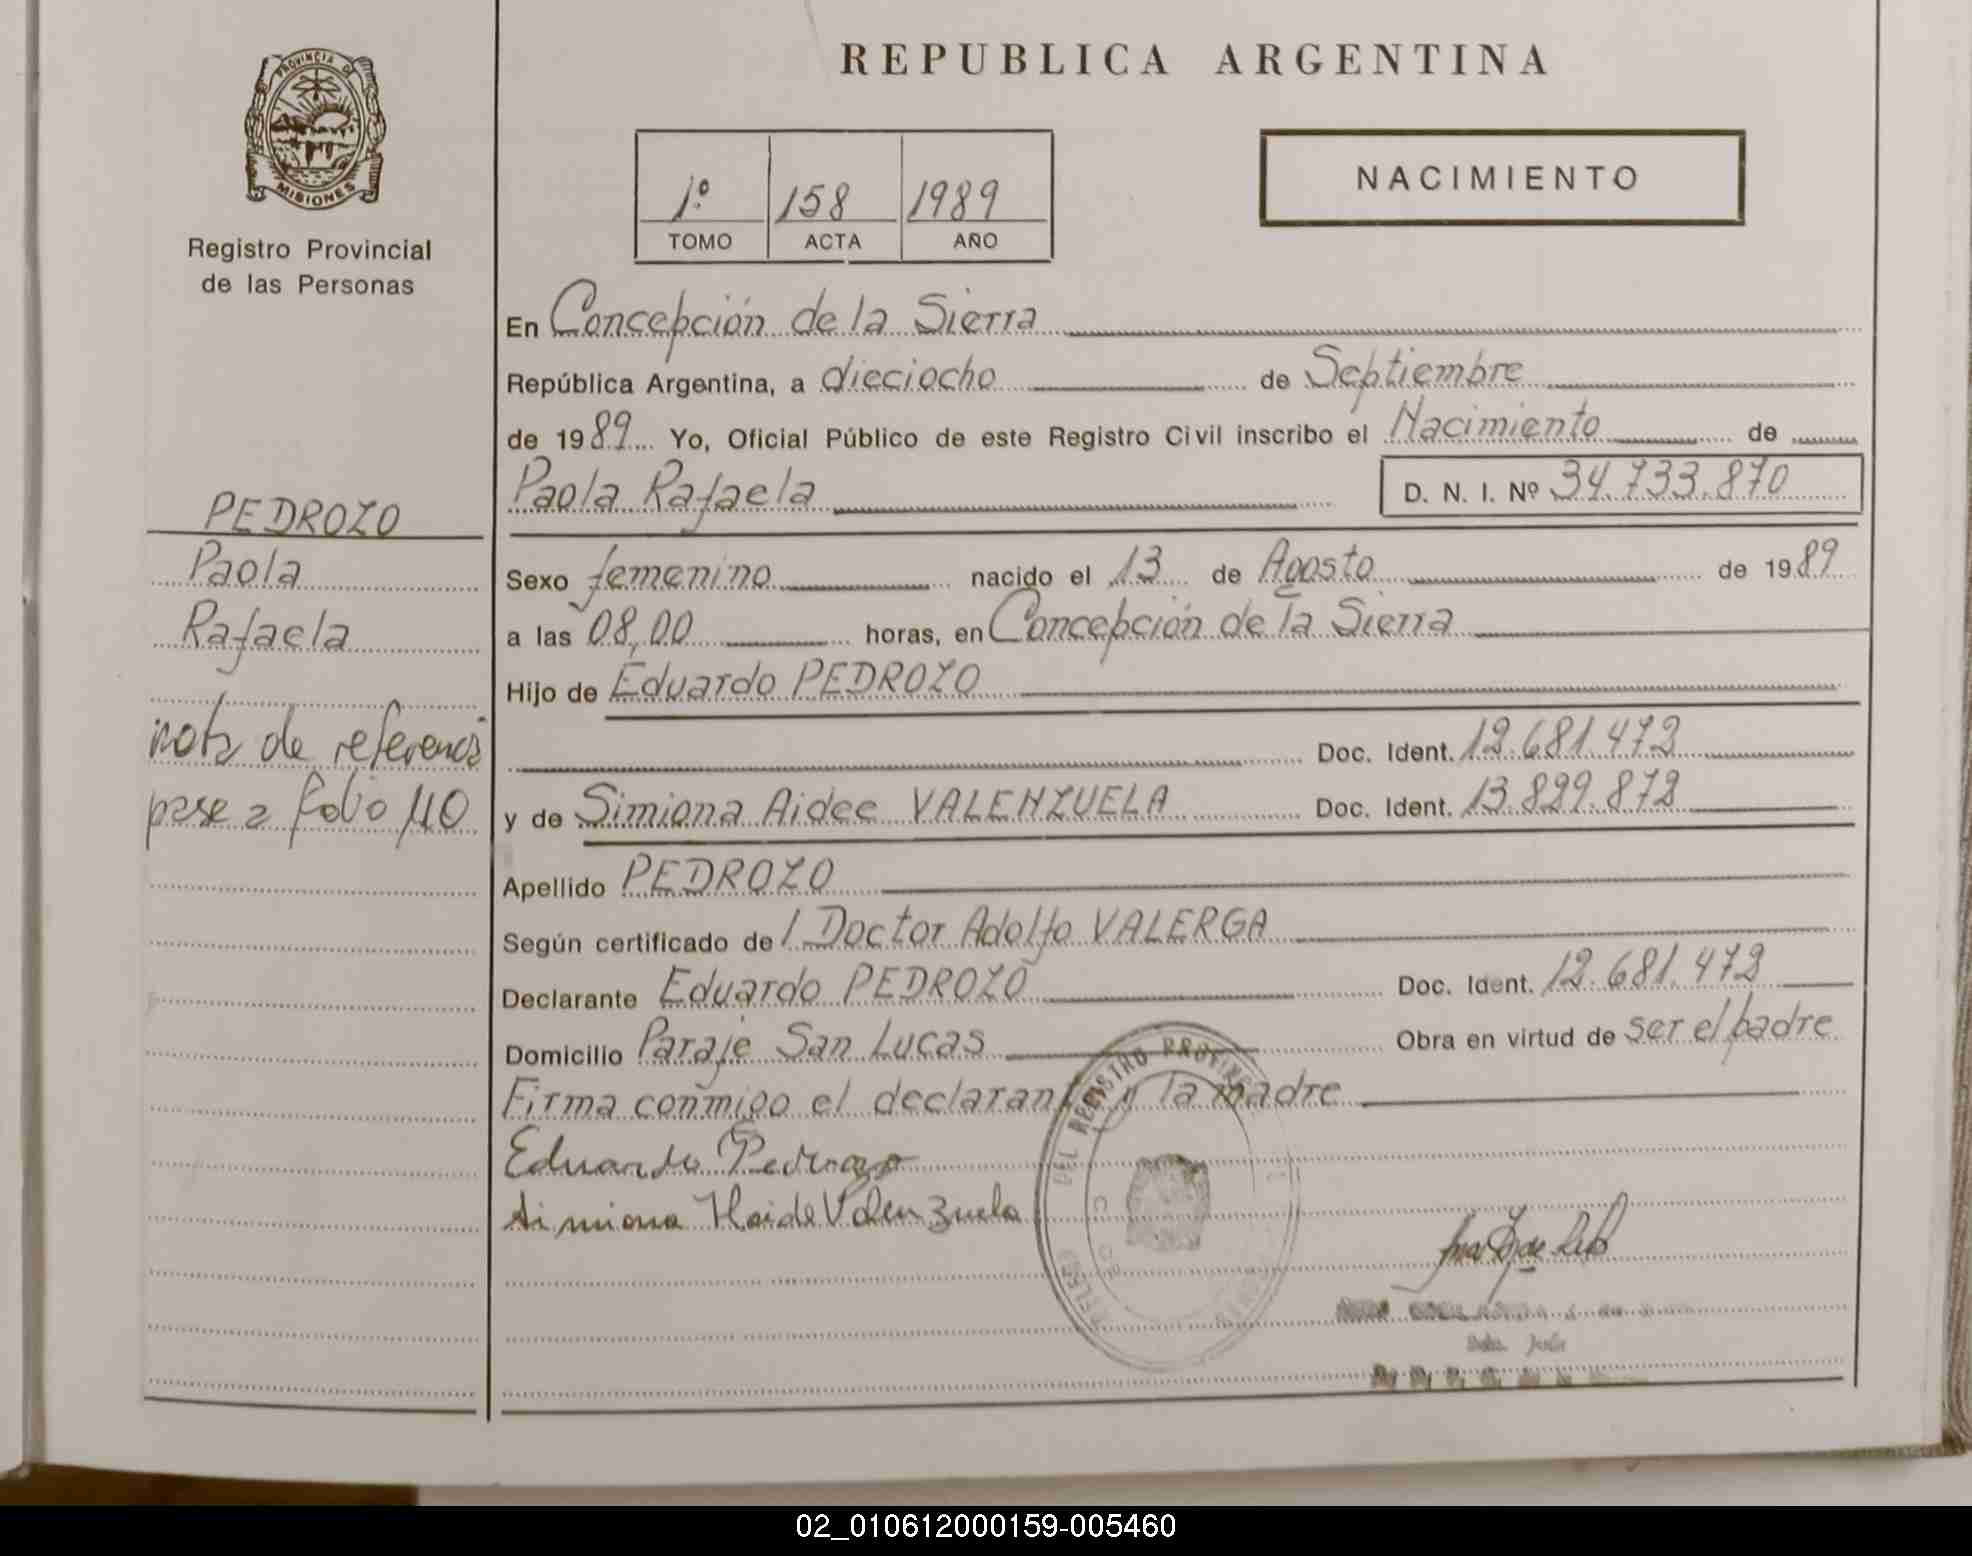 PROVINCIA DE
MISIONES
Registro Provincial
de las Personas
REPUBLICA ARGENTINA
1º 158 1989
TOMO ACTA AÑO
NACIMIENTO
PEDROZO
Paola
Rafaela
nota de referencia
pase a folio 110
En Concepción de la Sierra
República Argentina, a dieciocho de Septiembre
de 1989 Yo, Oficial Público de este Registro Civil inscribo el Nacimiento de
Paola Rafaela D. N. I. Nº 34.733.870
Sexo femenino nacido el 13 de Agosto de 1989
a las 08,00 horas, en Concepción de la Sierra
Hijo de Eduardo PEDROZO
Doc. Ident. 12.681.472
y de Simiona Aidee VALENZUELA Doc. Ident. 13.829.872
Apellido PEDROZO
Según certificado de / Doctor Adolfo VALERGA
Declarante Eduardo PEDROZO Doc. Ident. 12.681.472
Domicilio Paraje San Lucas Obra en virtud de ser el padre
Firma conmigo el declarante y la madre
Eduardo Pedrozo
Simiona Haide Valenzuela
DEL REGISTRO PROVINCIAL
02_010612000159-005460